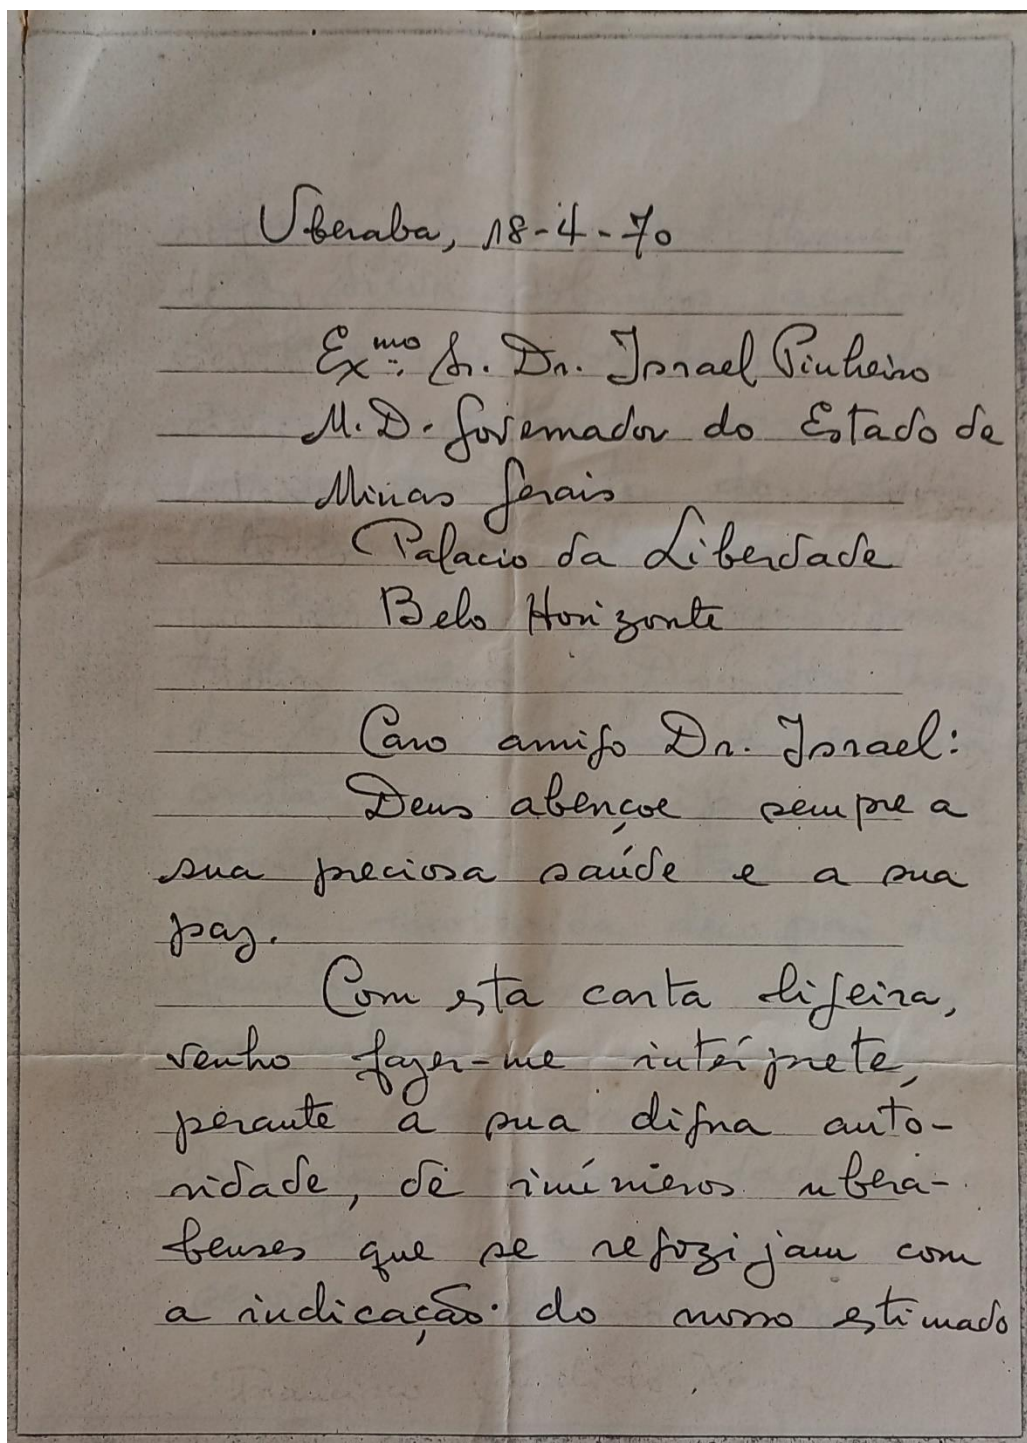 Uberaba, 18-4-70
Exmo. Sr. Dr. Israel Pinheiro
M.D. Governador do Estado de
Minas Gerais
Palacio da Liberdade
Belo Horizonte
Caro amigo Dr. Israel:
Deus abençoe sempre a
sua preciosa saúde e a sua
paz.
Com esta carta ligeira,
venho fazer-me intérprete,
perante a sua digna auto-
ridade, de inúmeros ubera-
benses que se regozijam com
a indicação do nosso estimado